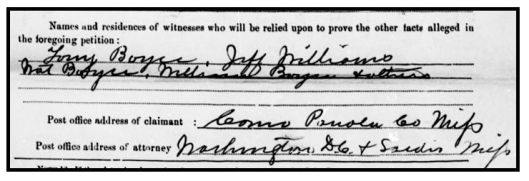 Names and residences of witnesses who will be relied upon to prove the other facts alleged in
the foregoing petition:
Tony Boyce, Jeff Williams
Nat Boyce, William Boyce & others
Post office address of claimant : Como Panola Co Miss
Post office address of attorney Washington D.C. & Sardis Miss